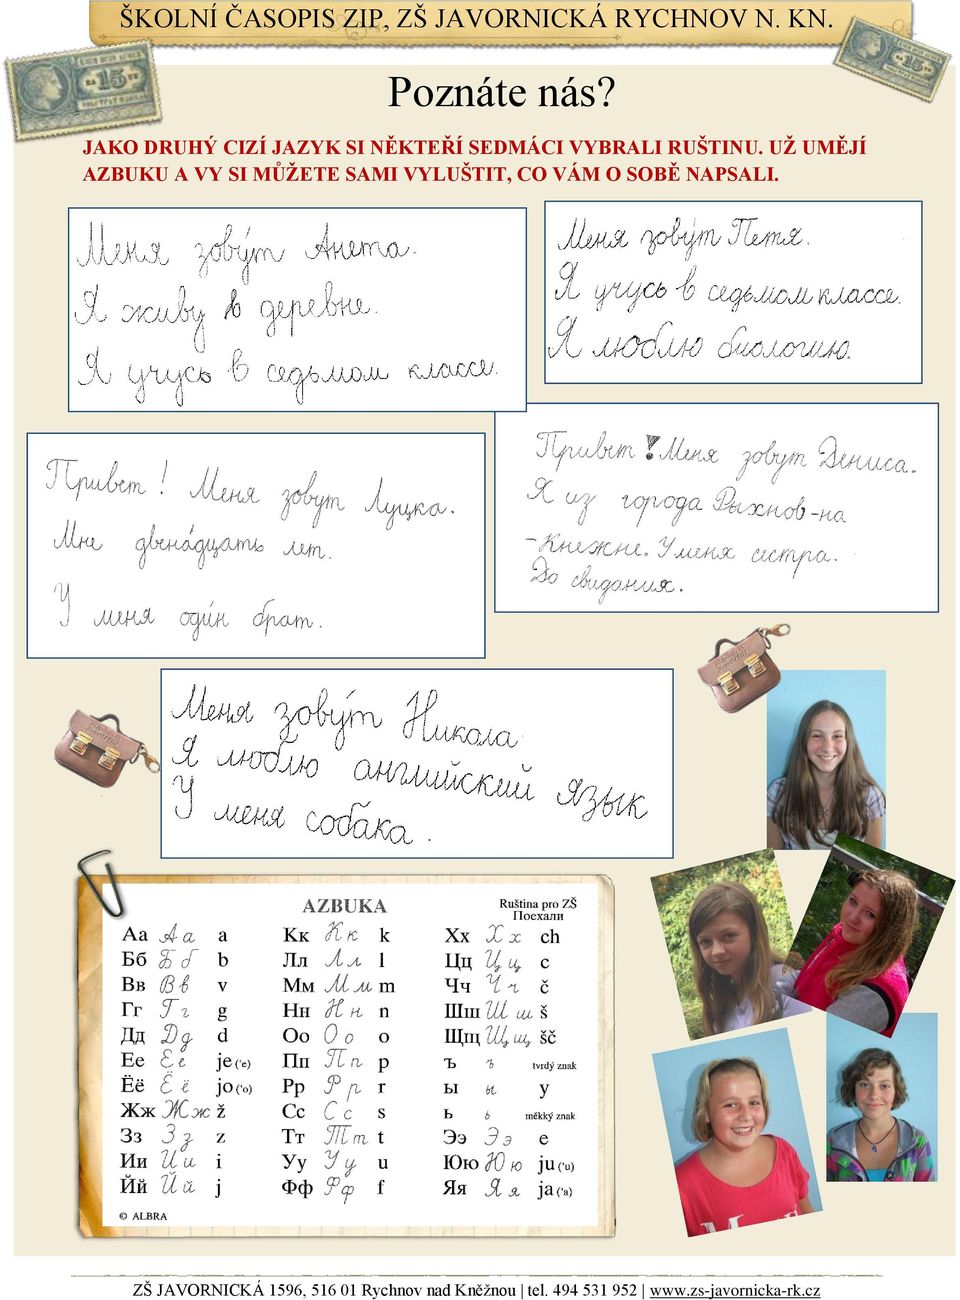 ŠKOLNÍ ČASOPIS ZIP, ZŠ JAVORNICKÁ RYCHNOV N. KN.
Poznáte nás?
JAKO DRUHÝ CIZÍ JAZYK SI NĚKTEŘÍ SEDMÁCI VYBRALI RUŠTINU. UŽ UMĚJÍ
AZBUKU A VY SI MŮŽETE SAMI VYLUŠTIT, CO VÁM O SOBĚ NAPSALI.
Меня зову́т Анета.
Я живу в деревне.
Я учусь в седьмом классе.
Меня зову́т Петя.
Я учусь в седьмом классе.
Я люблю биологию.
Привет! Меня зовут Луцка.
Мне двена́дцать лет.
У меня оди́н брат.
Привет! Меня зовут Дениса.
Я из города Рыхнов-на
-Кнежне. У меня сестра.
До свидания.
Меня зову́т Никола
Я люблю английский язык
У меня собака.
AZBUKA
Ruština pro ZŠ
Поехали
Аа Аа a Кк Кк k Хх Хх ch
Бб Бб b Лл Лл l Цц Цц c
Вв Вв v Мм Мм m Чч Чч č
Гг Гг g Нн Нн n Шш Шш š
Дд Дд d Оо Оо o Щщ Щщ šč
Ее Ее je ('e) Пп Пп p ъ ъ tvrdý znak
Ёё Ёё jo ('o) Рр Рр r ы ы y
Жж Жж ž Сс Сс s ь ь měkký znak
Зз Зз z Тт Тт t Ээ Ээ e
Ии Ии i Уу Уу u Юю Юю ju ('u)
Йй Йй j Фф Фф f Яя Яя ja ('a)
© ALBRA
ZŠ JAVORNICKÁ 1596, 516 01 Rychnov nad Kněžnou | tel. 494 531 952 | www.zs-javornicka-rk.cz